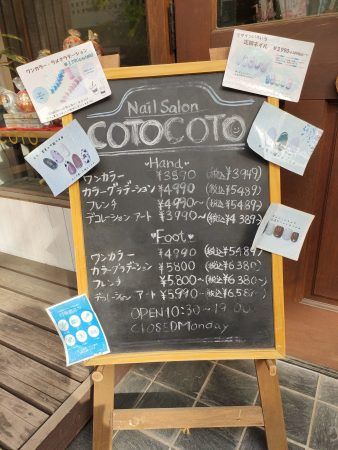 Nail Salon
COTOCOTO
Hand
ワンカラー ¥3870 (税込¥3949)
カラーグラデーション ¥4990 (税込¥5489)
フレンチ ¥4990~ (税込¥5489)
デコレーション アート ¥3990~ (税込¥4389)~
Foot
ワンカラー ¥4990 (税込¥5489)
カラーグラデーション ¥5800 (税込¥6380)
フレンチ ¥5800~ (税込¥6380)~
デコレーション アート ¥5990~
OPEN 10:30~19:00
CLOSED Monday
ワンカラー・ラメグラデーション
定額ネイル
¥3,990